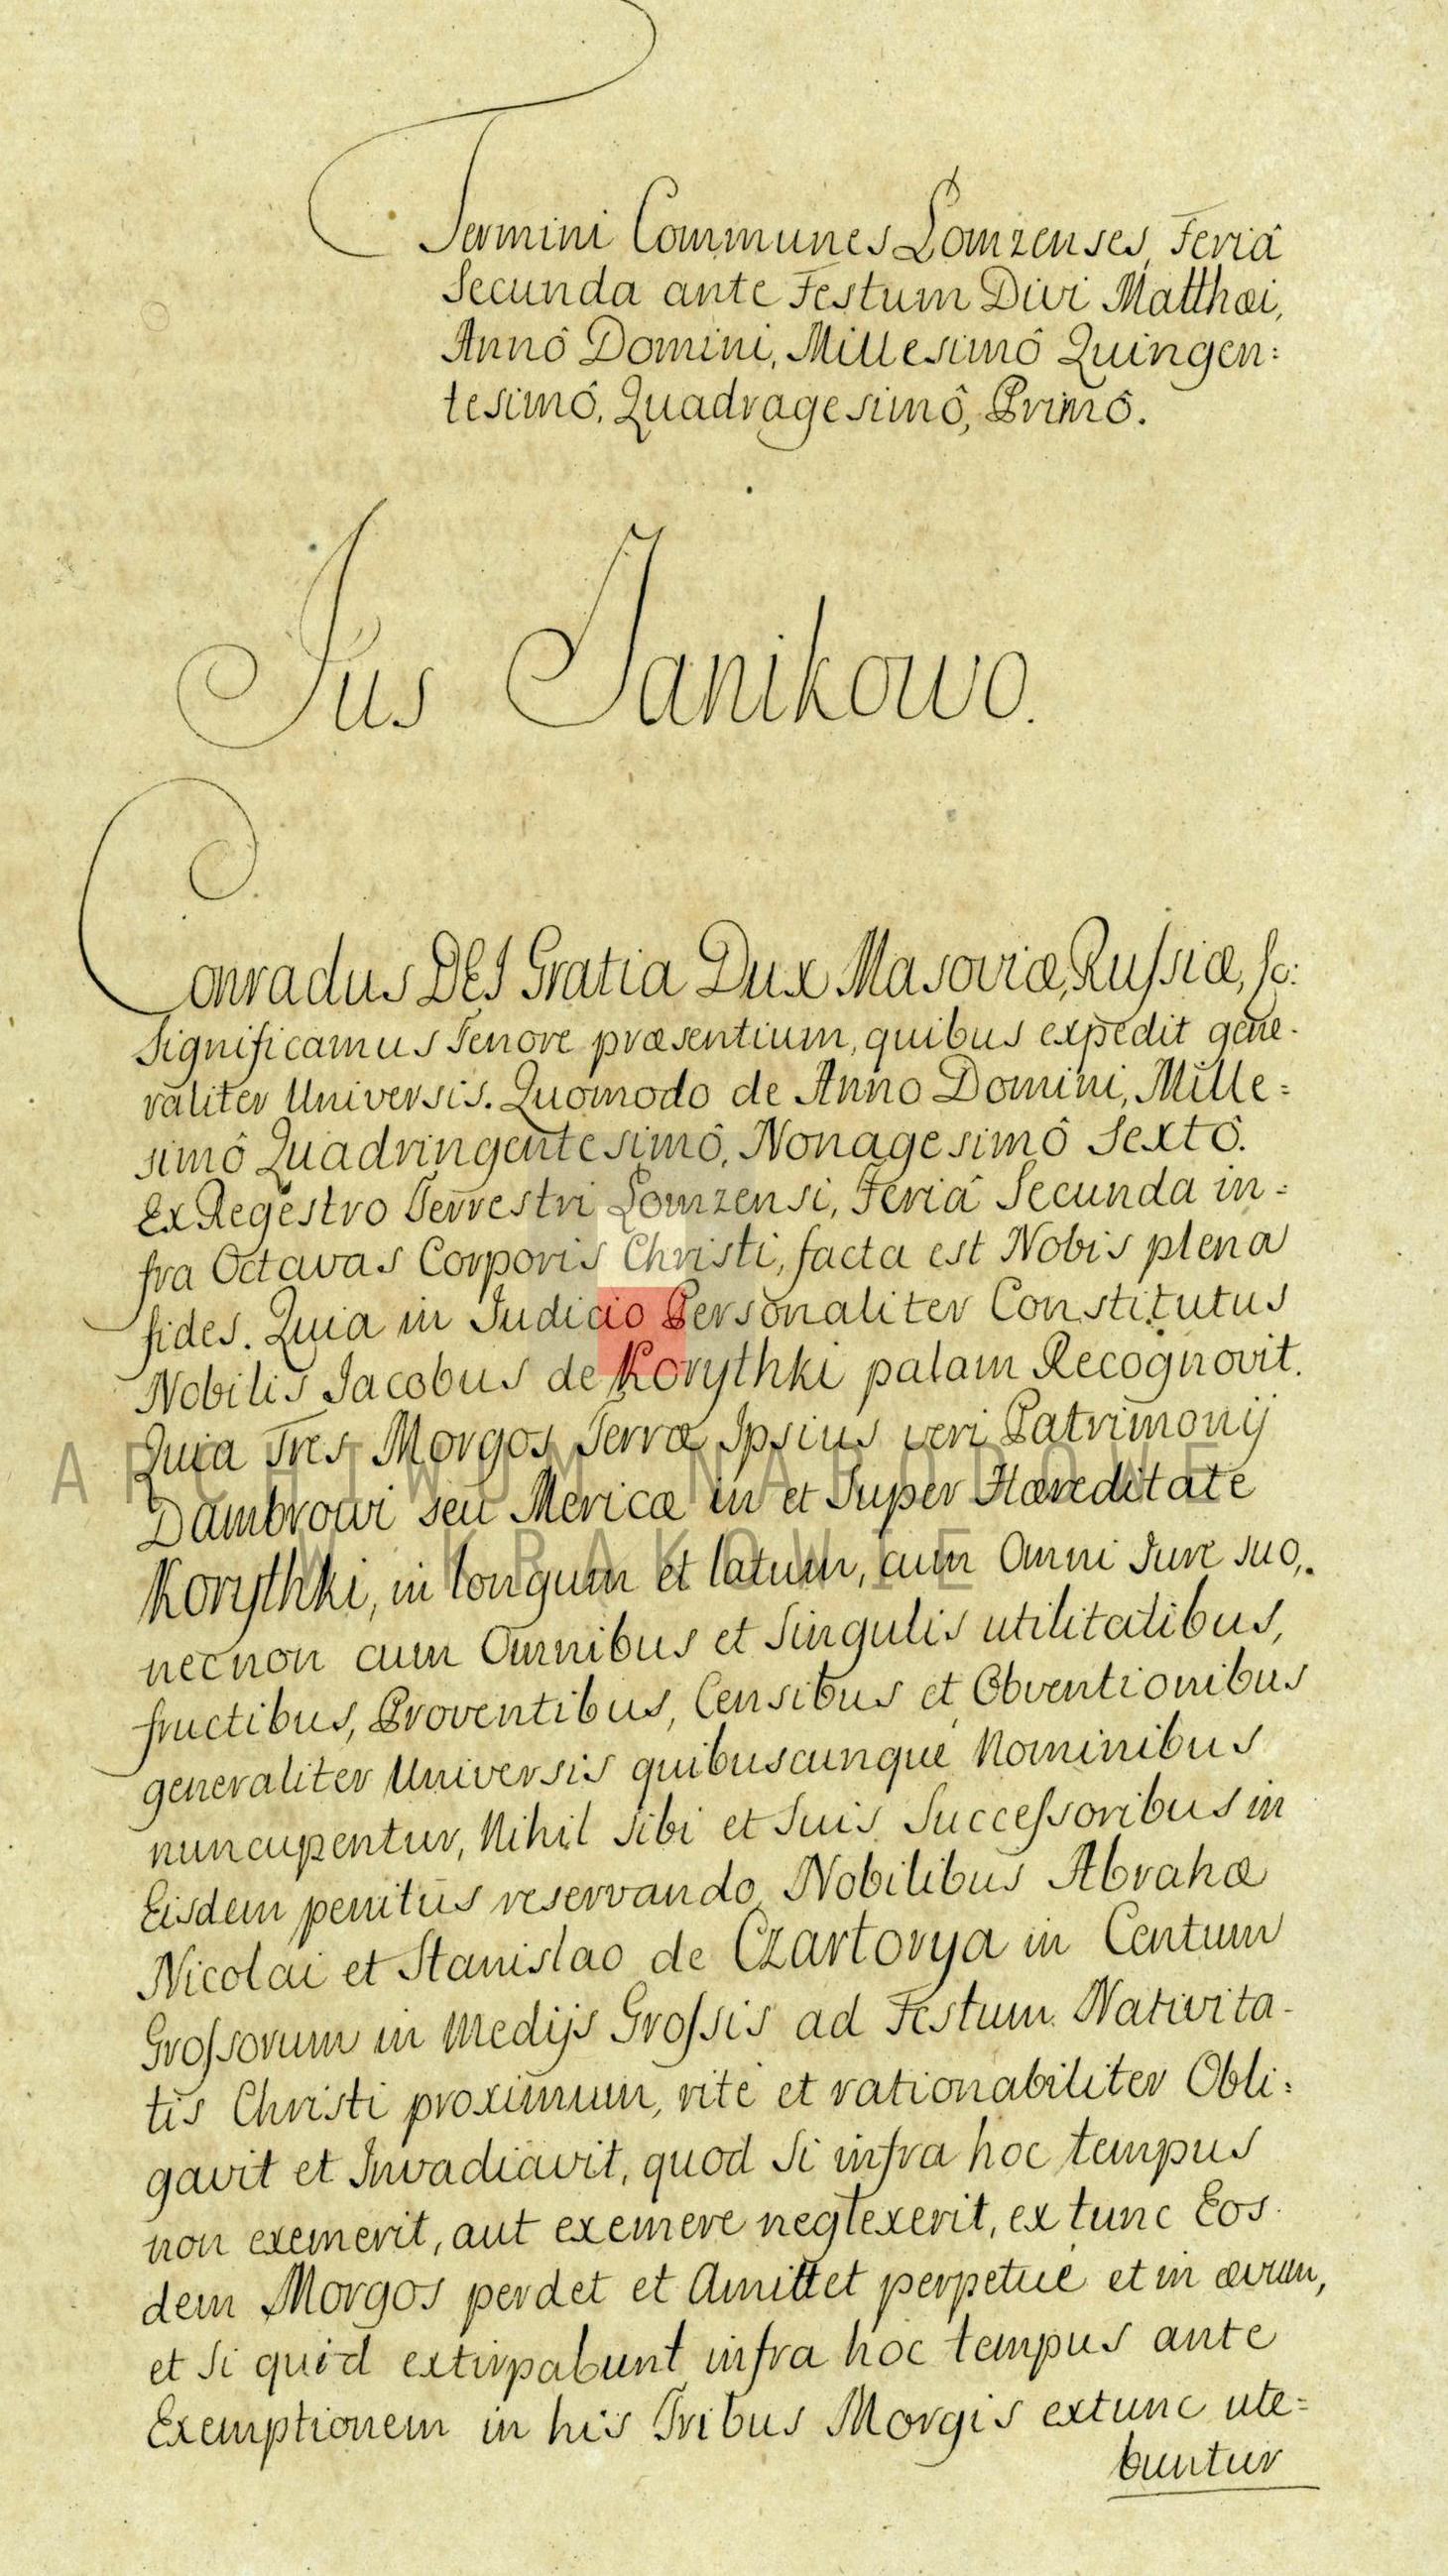 Termini Communes Lomzenses, Feriâ
Secunda ante Festum Divi Matthæi,
Annô Domini, Millesimô Quingen:
tesimô, Quadragesimô, Primô.
Jus Janikowo.
Conradus DEI Gratia Dux Masoviæ, Russiæ, &c:
Significamus Tenore præsentium, quibus expedit gene-
raliter Universis. Quomodo de Anno Domini, Mille=
simô Quadringentesimô, Nonagesimô Sextô.
Ex Regestro Terrestri Lomzensi, Feriâ Secunda in=
fra Octavas Corporis Christi, facta est Nobis plena
fides. Quia in Judicio Personaliter Constitutus
Nobilis Jacobus de Korythki palam Recognovit.
Quia Tres Morgos Terræ Ipsius veri Patrimonij
Dambrowi seu Mericæ in et Super Hæreditate
ARCHIWUM NARODOWE
Korythki, in longum et latum, cum Omni Jure suo,
W KRAKOWIE
necnon cum Omnibus et Singulis utilitatibus,
fructibus, Proventibus, Censibus et Obventionibus
generaliter Universis quibuscunque Nominibus
nuncupentur, Nihil Sibi et Suis Successoribus in
Eisdem penitus reservando, Nobilibus Abrahæ
Nicolai et Stanislao de Czartorya in Centum
Grossorum in Medijs Grossis ad Festum Nativita-
tis Christi proximum, rite et rationabiliter Obli:
gavit et Invadiavit, quod Si infra hoc tempus
non exemerit, aut exemere neglexerit, ex tunc Eos
dem Morgos perdet et Amittet perpetue et in ævum,
et Si quid extirpabunt infra hoc tempus ante
Exemptionem in his Tribus Morgis extunc ute=
buntur